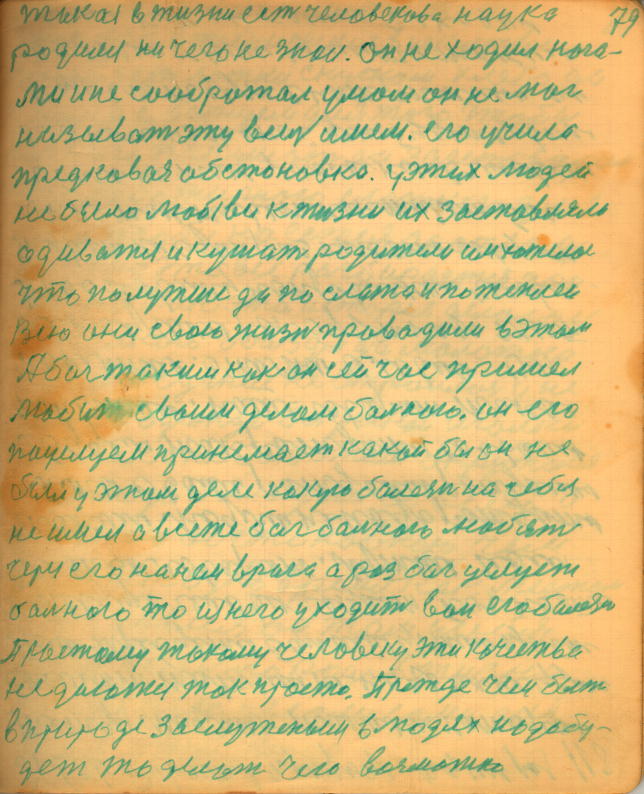 79
такая в жизни ест человекова наука
родился ни чего не знои. он не ходил нога-
ми и не соображал умом он не мог
называт эту вещ имем. его учила
предковая обстоновка. у этих людей
не было любви к жизни их заставляла
одиватся и кушат родители им хотелос
что полутше да по слаже и потеплей
Всю они свою жизн проводили в этом
А бог таким как он сей час пришел
любит своим делом балного. он его
поцелуем принемает какой бы он не
был у этом деле какую болезн на себя
не имел а все же бог балного любят
чем его на нем врага а роз бог целует
балного то из него уходит вон его болезн
Простому такому человеку эти качества
не даюжтя так просто. Прежде чем быт
в природе заслуженым в людях надобу-
дет то делат чего возможно